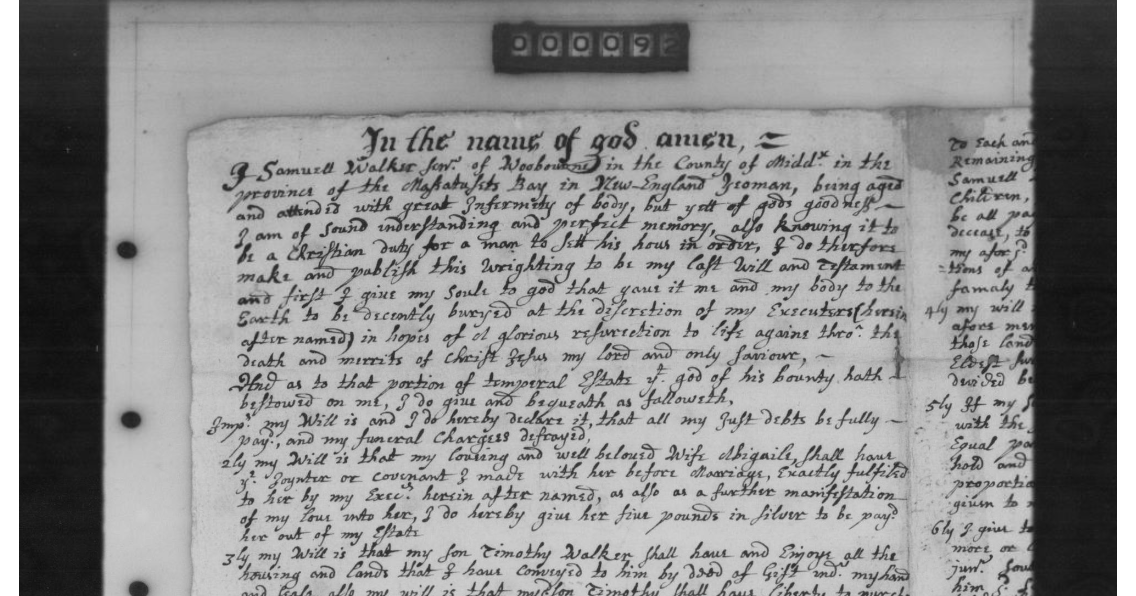 000092
In the name of god amen,
I Samuell Walker senr. of Woobourne in the County of Middx in the
province of the Massatusets Bay in New-England Yeoman, being aged
and attended with great Infermety of body, but yett of gods goodness
I am of sound understanding and perfect memory, also knowing it to
be a Christian duty for a man to sett his hous in order, I do therfore
make and publish this wrighting to be my last Will and Testament
and first I give my Soule to god that gave it me and my body to the
Earth to be decently buryed at the discretion of my Executers (herein
after named) in hopes of a glorious resurrection to life againe thro. the
death and merrits of Christ Jesus my lord and only saviour,
And as to that portion of temperal Estate yt. god of his bounty hath
bestowed on me, I do give and bequeath as followeth,
Impr. my Will is and I do hereby declare it, that all my Just debts be fully
payd., and my funeral Chargess defrayed,
2ly my Will is that my loueing and well beloved Wife Abigaile, shall have
ye. Joynter or Covenant I made with her before Marriage, Exactly fulfiled
to her by my Execr. herein after named, as also as a further manifestation
of my love unto her, I do hereby give her five pounds in silver to be payd
her out of my Estate
3ly my Will is that my son Timothy Walker shall have and Enjoye all the
housing and lands that I have Conveyed to him by deed of Gift undr. my hand
and Seale also my will is that my son Timothy shall have liberty to
To Each and
Remaining
Samuell
Children,
be all
decease, to
my aforsd.
tems of
famaly
4ly my will
afore
those land
Eldest
devided be
5ly If my
with the
Equal
hold and
proportio
given to
6ly I give to
more or
junr.
him